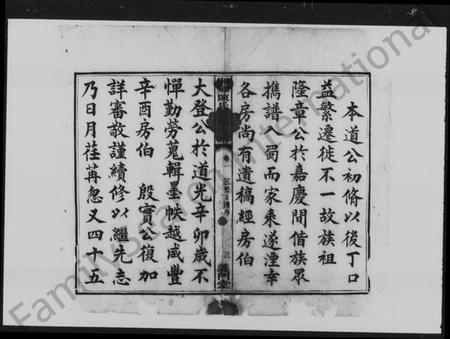 本道公初脩以後丁口
益繁遷徙不一故族祖
隆章公於嘉慶間偕族眾
擕譜入蜀而家乘遂湮幸
各房尚有遺稿經房伯
大登公於道光辛卯歲不
憚勤勞蒐輯墨帙越咸豐
辛酉房伯 殷實公復加
詳審敬謹續修以繼先志
乃日月荏苒忽又四十五
卷一
三
FamilySearch International